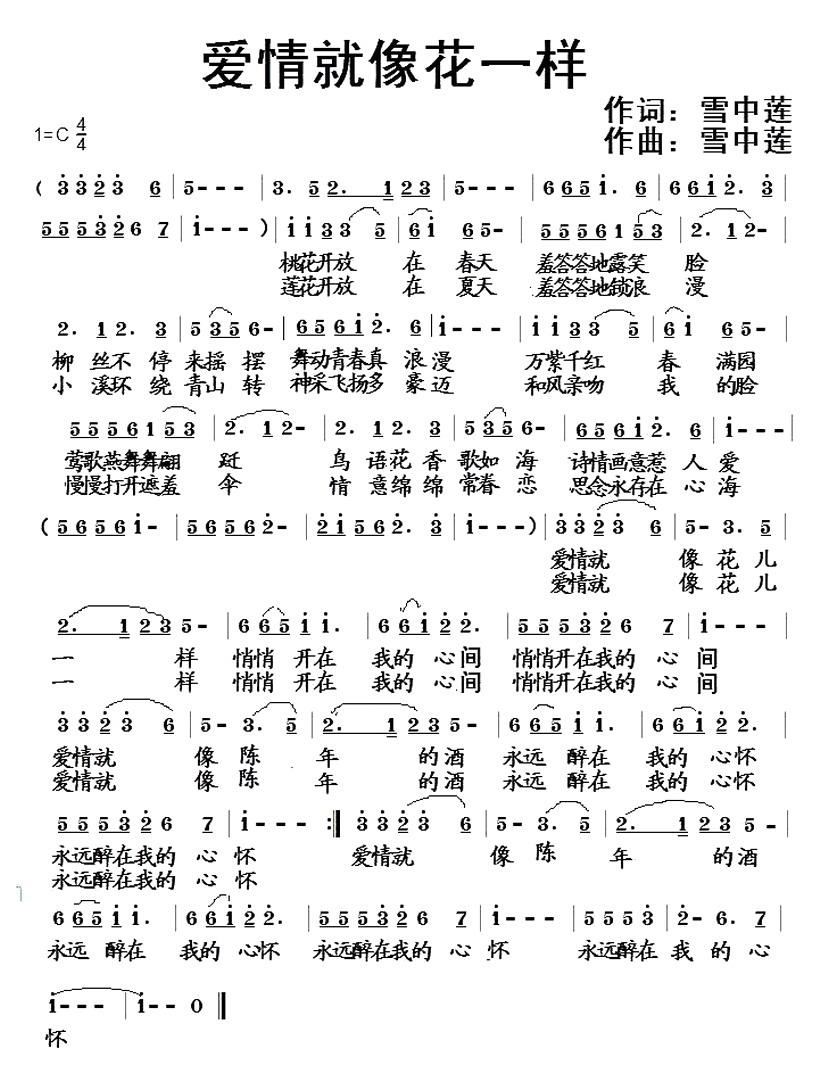 爱情就像花一样
作词：雪中莲
1=C 4/4
作曲：雪中莲
( 3 3 2 3 6 | 5 - - - | 3. 5 2. 1 2 3 | 5 - - - | 6 6 5 i. 6 | 6 6 i 2. 3 |
5 5 5 3 2 6 7 | i - - - ) | i i 3 3 5 | 6 i 6 5 - | 5 5 5 6 1 5 3 | 2. 1 2 - |
桃花开放 在 春天 羞答答地露笑 脸
莲花开放 在 夏天 羞答答地锁浪 漫
2. 1 2. 3 | 5 3 5 6 - | 6 5 6 i 2. 6 | i - - - | i i 3 3 5 | 6 i 6 5 - |
柳 丝不 停 来摇 摆 舞动青春真 浪漫 万紫千红 春 满园
小 溪环 绕 青山 转 神采飞扬多 豪迈 和风亲吻 我 的脸
5 5 5 6 1 5 3 | 2. 1 2 - | 2. 1 2. 3 | 5 3 5 6 - | 6 5 6 i 2. 6 | i - - - |
莺歌燕舞舞翩 跹 鸟 语花 香 歌如 海 诗情画意惹 人 爱
慢慢打开遮羞 伞 情 意绵 绵 常春 恋 思念永存在 心 海
( 5 6 5 6 i - | 5 6 5 6 2 - | 2 i 5 6 2. 3 | i - - - ) | 3 3 2 3 6 | 5 - 3. 5 |
爱情就 像 花 儿
爱情就 像 花 儿
2. 1 2 3 5 - | 6 6 5 i i. | 6 6 i 2 2. | 5 5 5 3 2 6 7 | i - - - |
一 样 悄悄 开在 我的 心间 悄悄开在我的 心 间
一 样 悄悄 开在 我的 心间 悄悄开在我的 心 间
3 3 2 3 6 | 5 - 3. 5 | 2. 1 2 3 5 - | 6 6 5 i i. | 6 6 i 2 2. |
爱情就 像 陈 年 的酒 永远 醉在 我的 心怀
爱情就 像 陈 年 的酒 永远 醉在 我的 心怀
5 5 5 3 2 6 7 | i - - - :‖ 3 3 2 3 6 | 5 - 3. 5 | 2. 1 2 3 5 - |
永远醉在我的 心 怀 爱情就 像 陈 年 的酒
永远醉在我的 心 怀
6 6 5 i i. | 6 6 i 2 2. | 5 5 5 3 2 6 7 | i - - - | 5 5 5 3 | 2 - 6. 7 |
永远 醉在 我的 心怀 永远醉在我的 心 怀 永远醉在 我 的 心
i - - - | i - - 0 ‖
怀